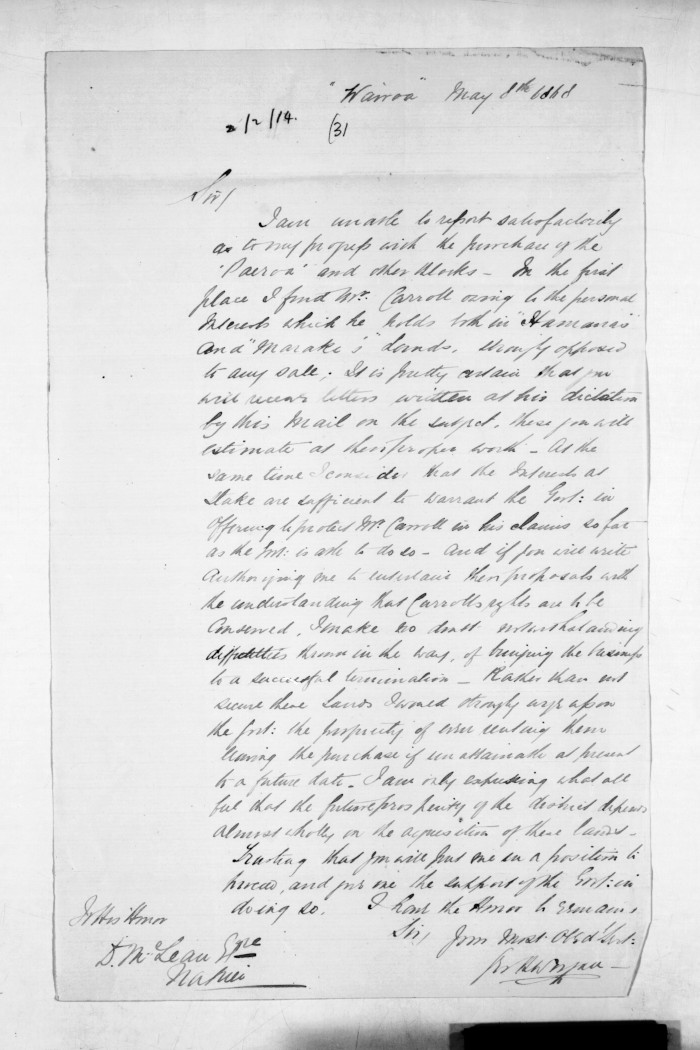 "Wairoa" May 8th 1868
2/2/14.
(31
Sir/
I am unable to report satisfactorily
as to my progress with the purchase of the
"Paeroa" and other blocks – In the first
place I find Mr. Carroll owing to the personal
Interests which he holds both in "Hamana's
and "Maraki's" Lands, strongly opposed
to any sale. It is pretty certain that you
will receive letters written at his dictation
by this Mail on the subject, these you will
estimate at their proper worth – At the
same time I consider that the Interests at
Stake are sufficient to warrant the Govt: in
Offering to protect Mr. Carroll in his claims so far
as the Govt: is able to do so – And if you will write
Authorizing me to entertain these proposals with
the understanding that Carroll's rights are to be
Conserved, I make no doubt notwithstanding
difficulties thrown in the way, of bringing the business
to a successful termination – Rather than not
secure these Lands I would strongly urge upon
the Govt: the propriety of even renting them
leaving the purchase if unattainable at present
to a future date. I am only expressing what all
feel that the future prosperity of the district depends
almost wholly on the acquisition of these lands –
Trusting that you will put me in a position to
proceed, and give me the support of the Govt: in
doing so. I have the Honor to remain
Sir, Your Most Obed' Servt:
To His Honor
D. McLean Esqre
Napier